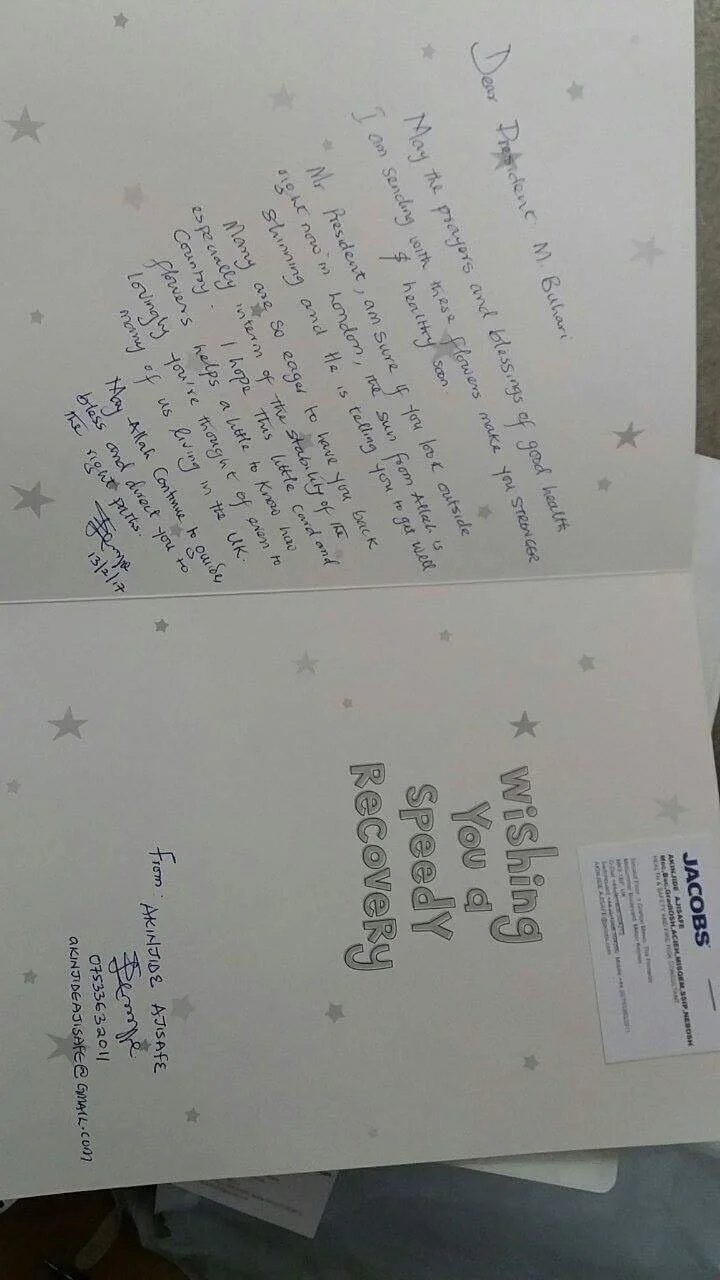 Dear President M. Buhari
May the prayers and blessings of good health
I am sending with these flowers make you STRONGER
& healthy soon.
Mr President, am sure if you look outside
right now in London, the sun from Allah is
shinning and He is telling you to get well
Many are so eager to have you back
especially interm of the stability of the
Country. I hope This little card and
flowers helps a little to know how
lovingly you're thought of even to
many of us living in the UK.
May Allah Continue to guide,
bless and direct you to
the right paths.
13/2/17
Wishing
You a
Speedy
Recovery
From: AKINJIDE AJISAFE
07533632011
AKINJIDEAJISAFE@GMAIL.COM
JACOBS
AKINJIDE AJISAFE
HEALTH & SAFETY AND FIRE RISK CONSULTANT